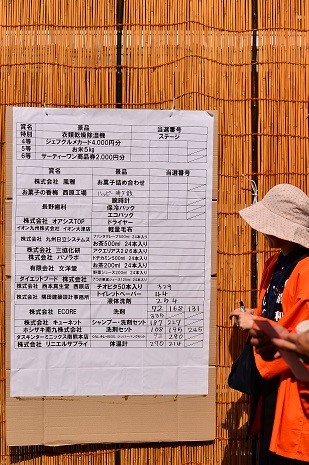 賞名 景品 当選番号
特別 衣類乾燥除湿機 ステージ
4等 ジェフグルメカード4,000円分
5等 お米5kg
6等 サーティーワン商品券2,000円分
賞名 景品 当選番号
株式会社 風雅 お菓子詰め合わせ
お菓子の香梅 西原工場
腕時計
長野歯科 保冷バック
エコバック
株式会社 オアシスTOP ドライヤー
イオン九州株式会社 イオン大津店 軽量毛布
株式会社 九州日立システムズ
お茶500ml 24本入り
株式会社 三協化研
株式会社 パソラボ
有限会社 文洋堂 お茶200ml 24本入り
ダイエットフード 株式会社
株式会社 西本真生堂 西原店 チオビタ50本入り 329
株式会社 隈田建築設計事務所 トイレットペーパー 44
液体洗剤 204
株式会社 ECORE 洗剤 72 168 131
334
株式会社 キューネット シャンプー・洗剤セット 187 227
ホシザキ南九株式会社 洗剤セット 108 195 245
ダスキンターミニックス南熊本店 72 290
株式会社 リニエルサプライ 体温計 290 214